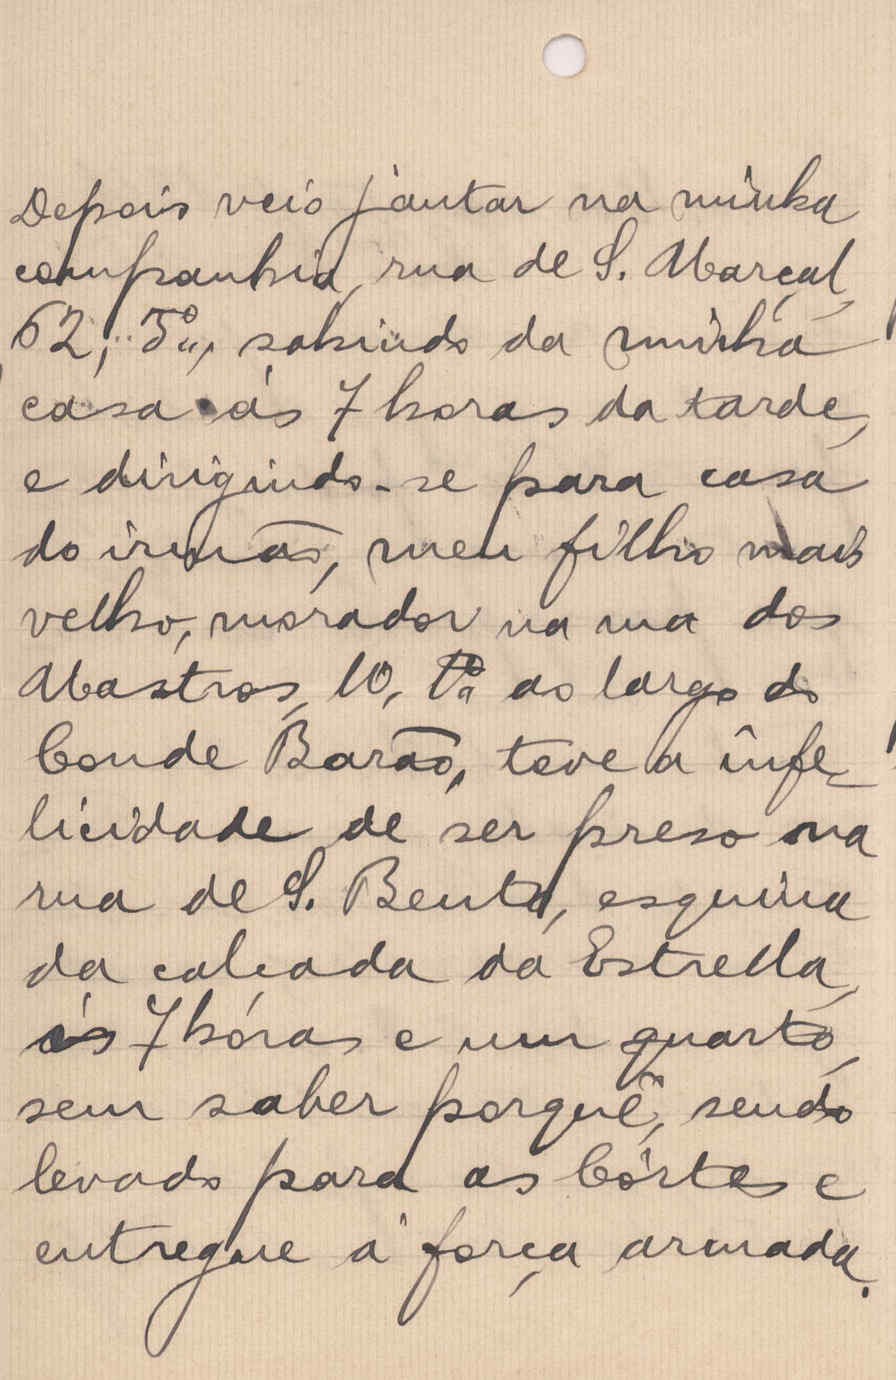 Depois veio jantar na minha
companhia, rua de S. Marçal,
62, 3º, sahindo da minha
casa ás 7 horas da tarde,
e dirigindo-se para casa
do irmão, meu filho mais
velho, morador na rua dos
Mastros, 10, 1º ao largo do
Conde Barão, teve a infe-
licidade de ser preso na
rua de S. Bento, esquina
da calcada da Estrella,
ás 7 hóras e um quarto,
sem saber porquê, sendo
levado para as Côrtes e
entregue á força armada.